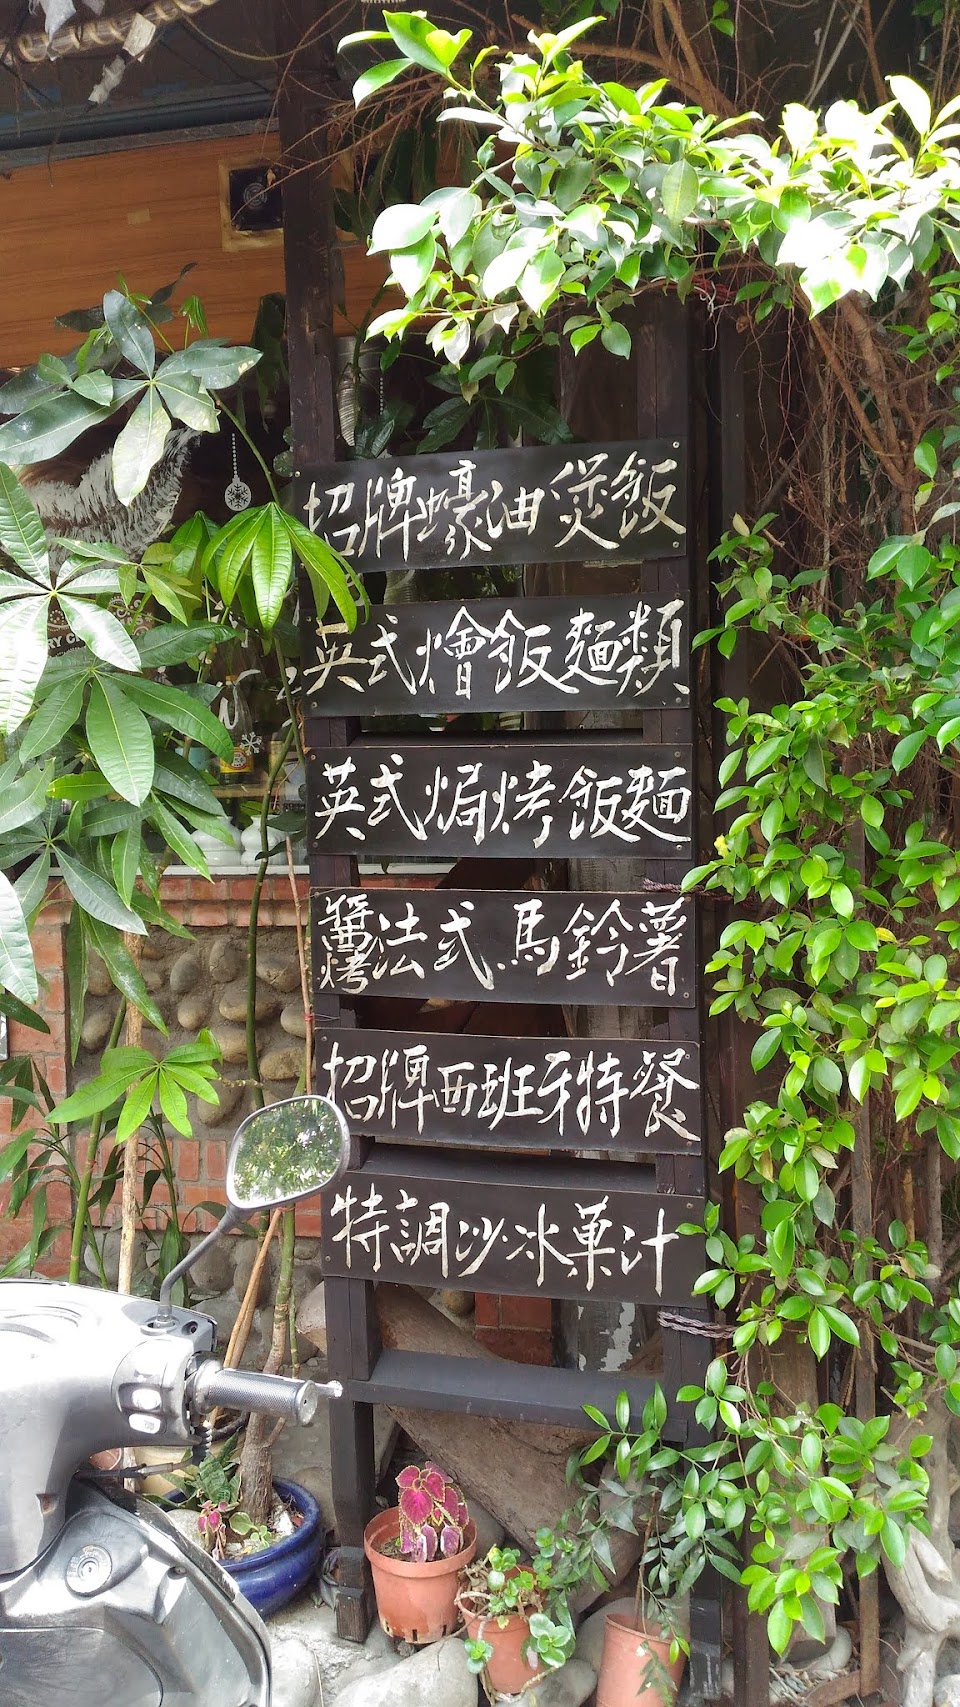 招牌蠔油煲飯
英式燴飯麵類
英式焗烤飯麵
醬烤法式馬鈴薯
招牌西班牙特餐
特調沙冰菓汁